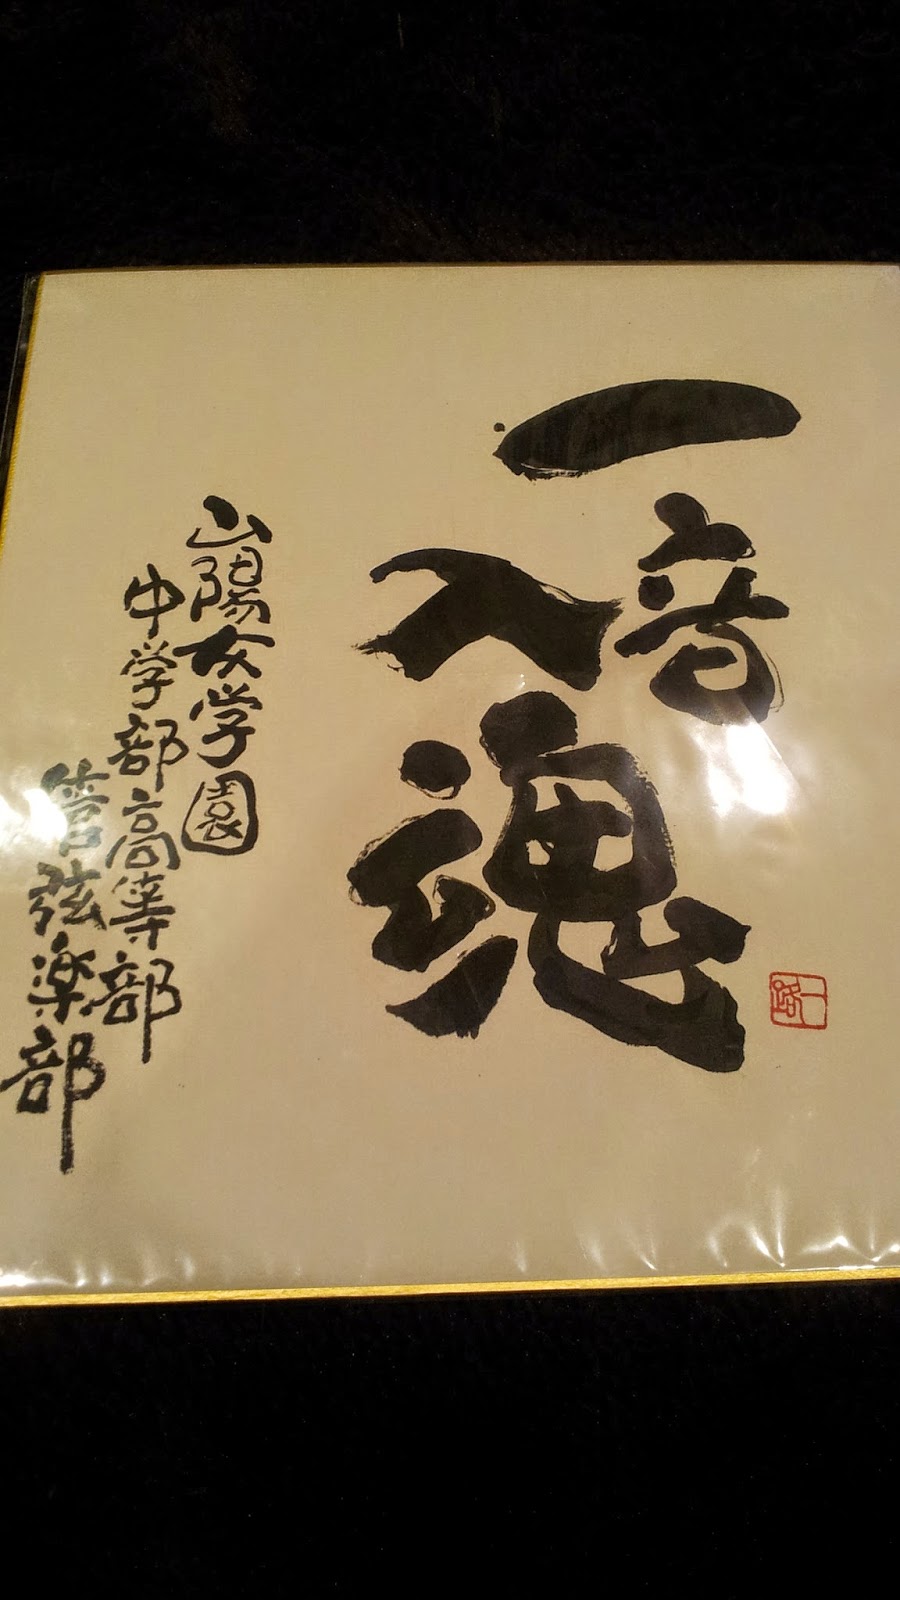 一音
入魂
山陽女学園
中学部高等部
管弦楽部